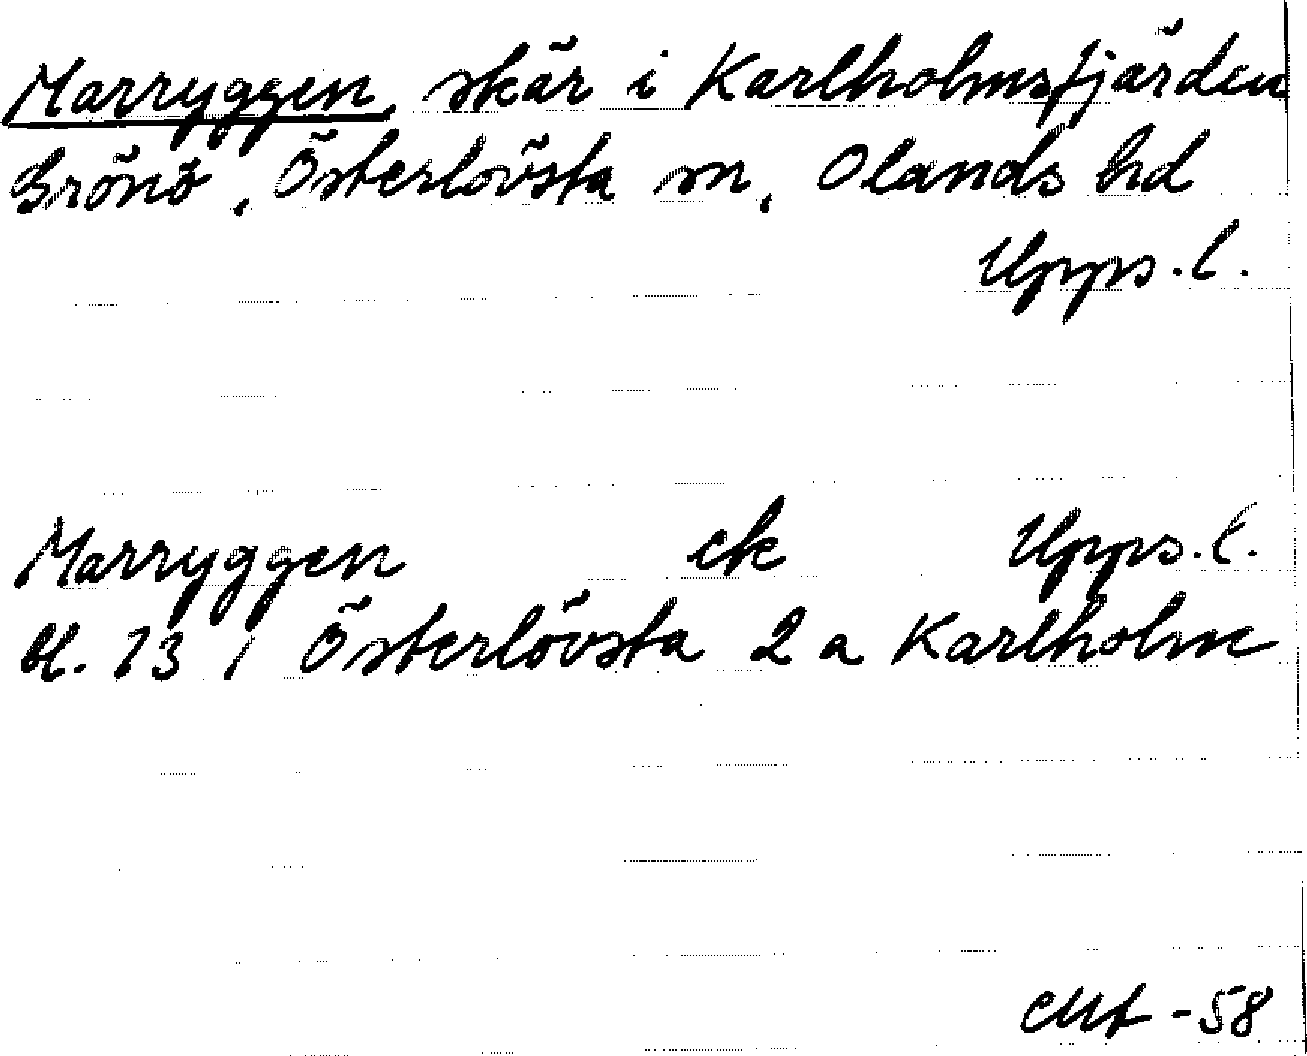 Marryggen, skär i Karlholmsfjärden
Grönö, Österlövsta sn, Olands hd
Upps. l.
Marryggen ek Upps. l.
bl. 13 / Österlövsta 2 a Karlholm
-58